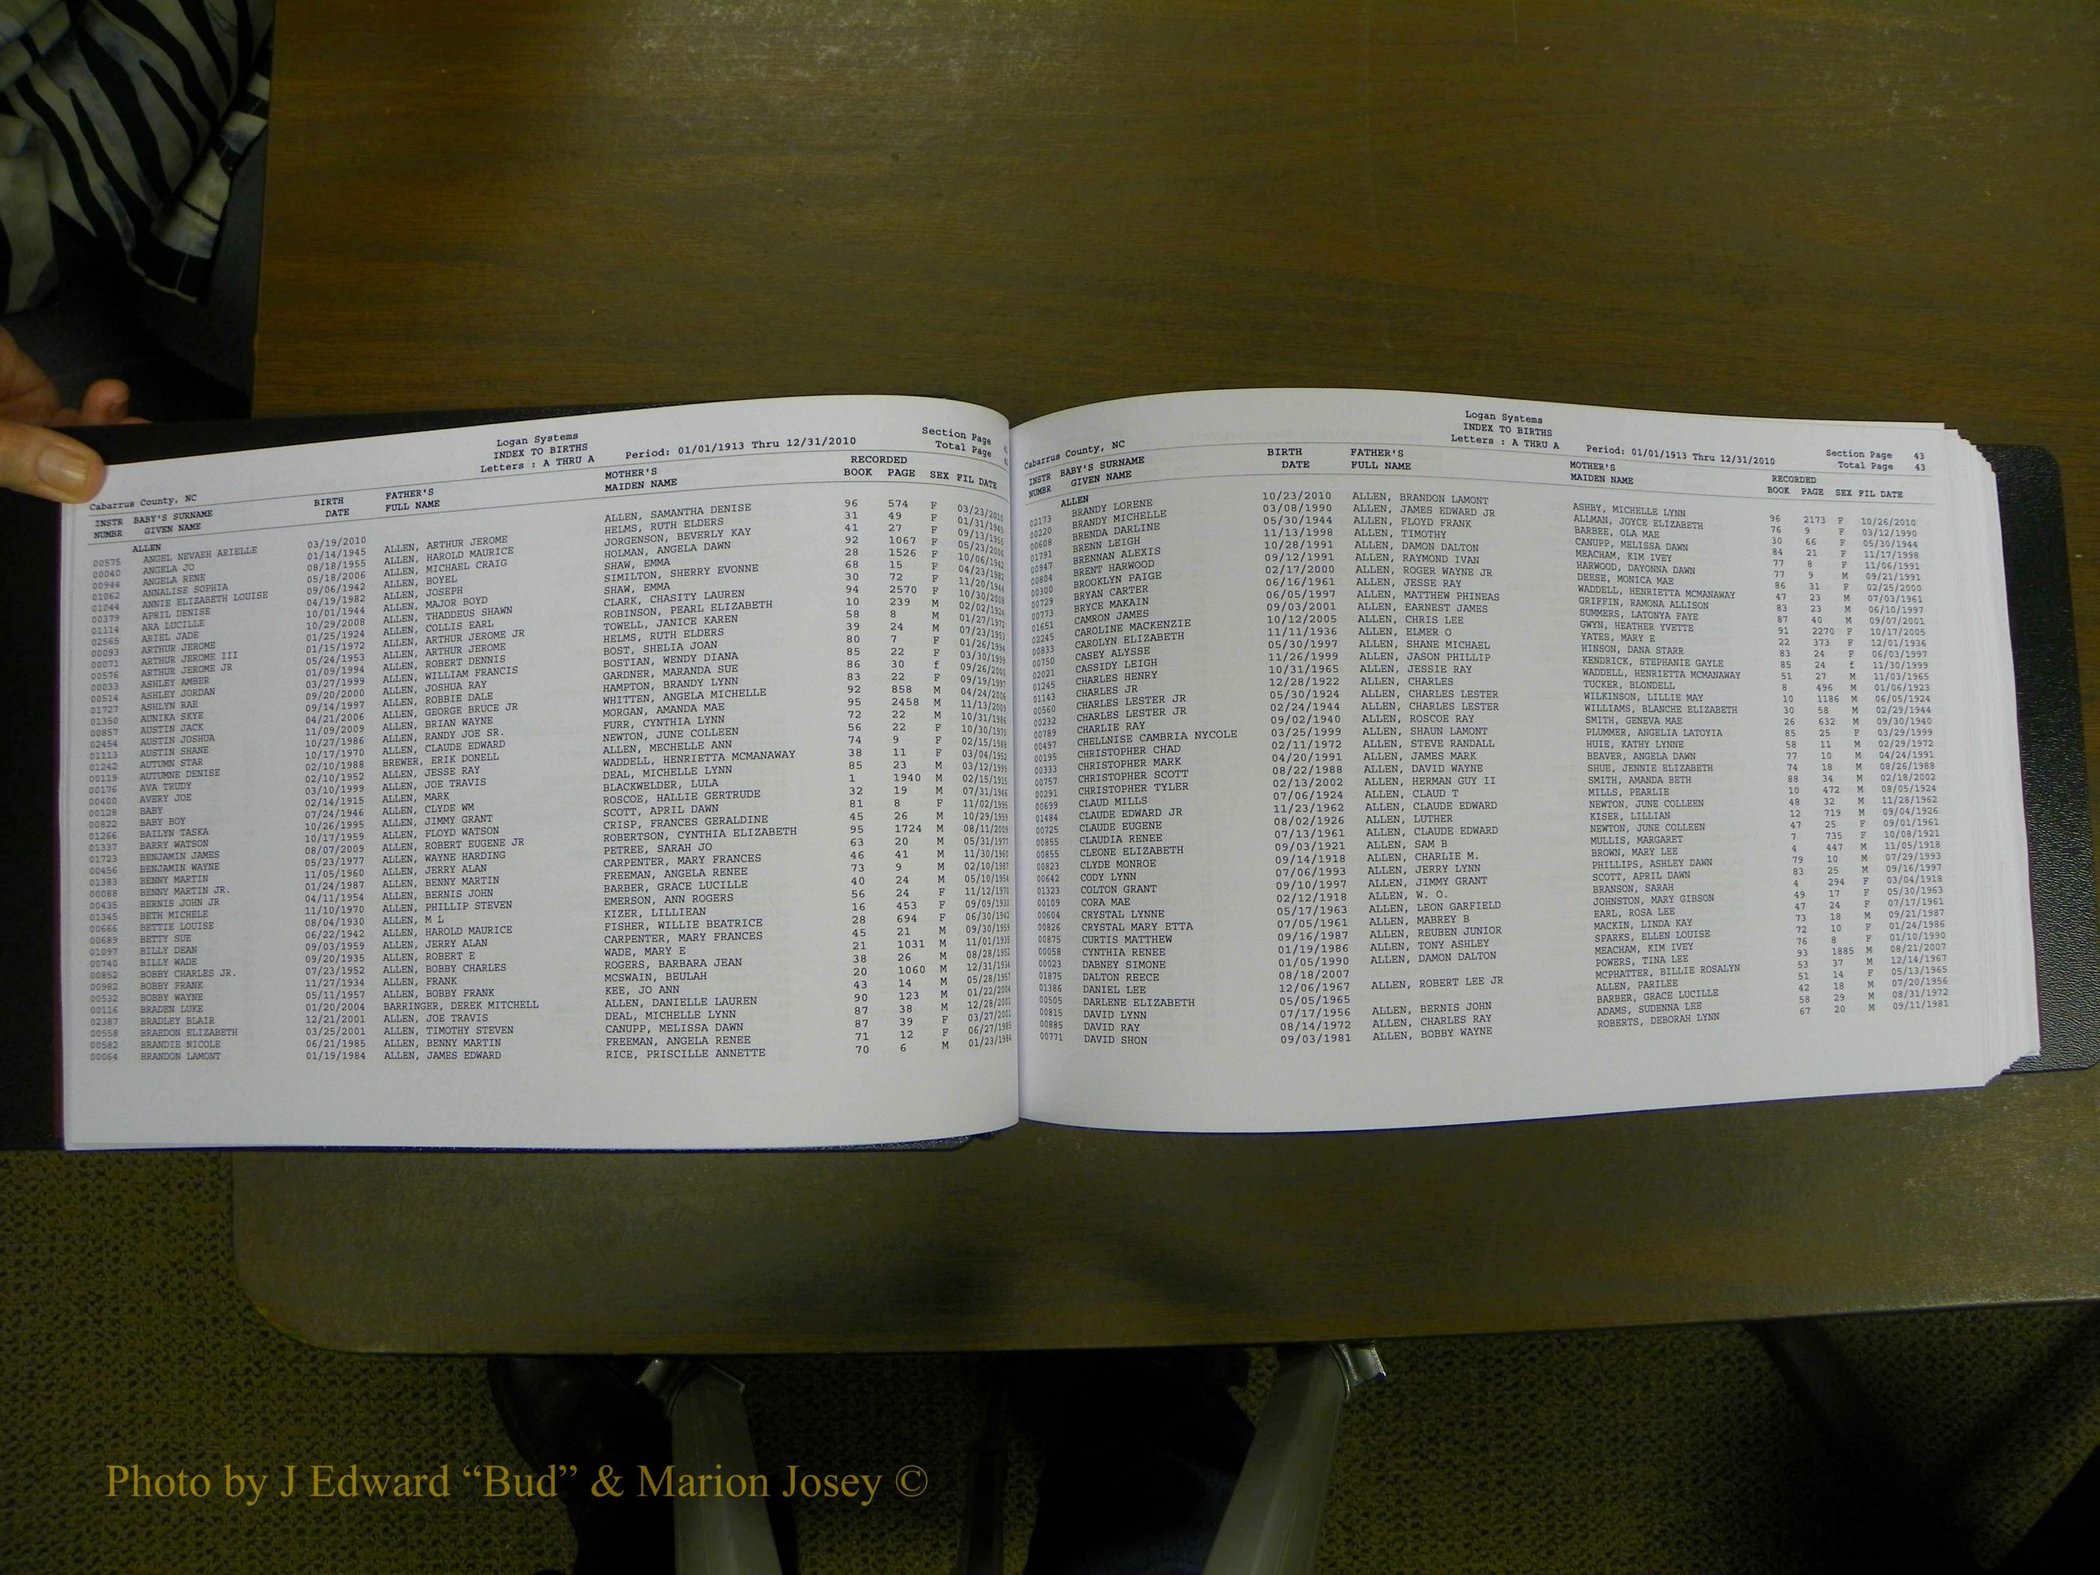 Logan Systems
INDEX TO BIRTHS
Cabarrus County, NC Letters : A THRU A Period: 01/01/1913 Thru 12/31/2010 Section Page
Total Page
INSTR BABY'S SURNAME BIRTH FATHER'S MOTHER'S RECORDED
NUMBR GIVEN NAME DATE FULL NAME MAIDEN NAME BOOK PAGE SEX FIL DATE
ALLEN
00575 ANGEL NEVAEH ARIELLE 03/19/2010 ALLEN, SAMANTHA DENISE 96 574 F 03/23/2010
00040 ANGELA JO 01/14/1945 ALLEN, ARTHUR JEROME HELMS, RUTH ELDERS 31 49 F 01/31/1945
00944 ANGELA RENE 08/18/1955 ALLEN, HAROLD MAURICE JORGENSON, BEVERLY KAY 41 27 F 09/13/1955
01062 ANNALISE SOPHIA 05/18/2006 ALLEN, MICHAEL CRAIG HOLMAN, ANGELA DAWN 92 1067 F 05/23/2006
01044 ANNIE ELIZABETH LOUISE 09/06/1942 ALLEN, BOYEL SHAW, EMMA 28 1526 F 10/06/1942
00379 APRIL DENISE 04/19/1982 ALLEN, JOSEPH SIMILTON, SHERRY EVONNE 68 15 F 04/23/1982
01114 ARA LUCILLE 10/01/1944 ALLEN, MAJOR BOYD SHAW, EMMA 30 72 F 11/20/1944
02565 ARIEL JADE 10/29/2008 ALLEN, THADDEUS SHAWN CLARK, CHASITY LAUREN 94 2570 F 10/30/2008
00093 ARTHUR JEROME 01/25/1924 ALLEN, COLLIS EARL ROBINSON, PEARL ELIZABETH 10 239 M 02/02/1924
00071 ARTHUR JEROME III 01/15/1972 ALLEN, ARTHUR JEROME JR TOWELL, JANICE KAREN 58 8 M 01/27/1972
00576 ARTHUR JEROME JR 05/24/1953 ALLEN, ARTHUR JEROME HELMS, RUTH ELDERS 39 24 M 07/23/1953
00033 ASHLEY AMBER 01/09/1994 ALLEN, ROBERT DENNIS BOST, SHELIA JOAN 80 7 F 01/26/1994
00514 ASHLEY JORDAN 03/27/1999 ALLEN, WILLIAM FRANCIS BOSTIAN, WENDY DIANA 85 22 F 03/30/1999
01727 ASHLYN RAE 09/20/2000 ALLEN, JOSHUA RAY GARDNER, MARANDA SUE 86 30 f 09/26/2000
01350 AUNIKA SKYE 09/14/1997 ALLEN, ROBBIE DALE HAMPTON, BRANDY LYNN 83 22 F 09/19/1997
00857 AUSTIN JACK 04/21/2006 ALLEN, GEORGE BRUCE JR WHITTEN, ANGELA MICHELLE 92 858 M 04/24/2006
02454 AUSTIN JOSHUA 11/09/2009 ALLEN, BRIAN WAYNE MORGAN, AMANDA MAE 95 2458 M 11/13/2009
01113 AUSTIN SHANE 10/27/1986 ALLEN, RANDY JOE SR. FURR, CYNTHIA LYNN 72 22 M 10/31/1986
01242 AUTUMN STAR 10/17/1970 ALLEN, CLAUDE EDWARD NEWTON, JUNE COLLEEN 56 22 F 10/30/1970
00119 AUTUMNE DENISE 02/10/1988 BREWER, ERIK DONELL ALLEN, MECHELLE ANN 74 9 F 02/15/1988
00176 AVA TRUDY 02/10/1952 ALLEN, JESSE RAY WADDELL, HENRIETTA MCMANAWAY 38 11 F 03/04/1952
00400 AVERY JOE 03/10/1999 ALLEN, JOE TRAVIS DEAL, MICHELLE LYNN 85 23 M 03/12/1999
00128 BABY 02/14/1915 ALLEN, MARK BLACKWELDER, LULA 1 1940 M 02/15/1915
00822 BABY BOY 07/24/1946 ALLEN, CLYDE WM ROSCOE, HALLIE GERTRUDE 32 19 M 07/31/1946
01266 BAILYN TASKA 10/26/1995 ALLEN, JIMMY GRANT SCOTT, APRIL DAWN 81 8 F 11/02/1995
01337 BARRY WATSON 10/17/1959 ALLEN, FLOYD WATSON CRISP, FRANCES GERALDINE 45 26 M 10/29/1959
01723 BENJAMIN JAMES 08/07/2009 ALLEN, ROBERT EUGENE JR ROBERTSON, CYNTHIA ELIZABETH 95 1724 M 08/11/2009
00456 BENJAMIN WAYNE 05/23/1977 ALLEN, WAYNE HARDING PETREE, SARAH JO 63 20 M 05/31/1977
01383 BENNY MARTIN 11/05/1960 ALLEN, JERRY ALAN CARPENTER, MARY FRANCES 46 41 M 11/30/1960
00088 BENNY MARTIN JR. 01/24/1987 ALLEN, BENNY MARTIN FREEMAN, ANGELA RENEE 73 9 M 02/10/1987
00435 BERNIS JOHN JR 04/11/1954 ALLEN, BERNIS JOHN BARBER, GRACE LUCILLE 40 24 M 05/10/1954
01345 BETH MICHELE 11/10/1970 ALLEN, PHILLIP STEVEN EMERSON, ANN ROGERS 56 24 F 11/12/1970
00666 BETTIE LOUISE 08/04/1930 ALLEN, M L KIZER, LILLIEAN 16 453 F 09/09/1930
00689 BETTY SUE 06/22/1942 ALLEN, HAROLD MAURICE FISHER, WILLIE BEATRICE 28 694 F 06/30/1942
01097 BILLY DEAN 09/03/1959 ALLEN, JERRY ALAN CARPENTER, MARY FRANCES 45 21 M 09/30/1959
00740 BILLY WADE 09/20/1935 ALLEN, ROBERT E WADE, MARY E 21 1031 M 11/01/1935
00852 BOBBY CHARLES JR. 07/23/1952 ALLEN, BOBBY CHARLES ROGERS, BARBARA JEAN 38 26 M 08/28/1952
00982 BOBBY FRANK 11/27/1934 ALLEN, FRANK MCSWAIN, BEULAH 20 1060 M 12/31/1934
00532 BOBBY WAYNE 05/11/1957 ALLEN, BOBBY FRANK KEE, JO ANN 43 14 M 05/28/1957
00116 BRADEN LUKE 01/20/2004 BARRINGER, DEREK MITCHELL ALLEN, DANIELLE LAUREN 90 123 M 01/22/2004
02387 BRADLEY BLAIR 12/21/2001 ALLEN, JOE TRAVIS DEAL, MICHELLE LYNN 87 38 M 12/28/2001
00558 BRAEDON ELIZABETH 03/25/2001 ALLEN, TIMOTHY STEVEN CANUPP, MELISSA DAWN 87 39 F 03/27/2001
00582 BRANDIE NICOLE 06/21/1985 ALLEN, BENNY MARTIN FREEMAN, ANGELA RENEE 71 12 F 06/27/1985
00064 BRANDON LAMONT 01/19/1984 ALLEN, JAMES EDWARD RICE, PRISCILLE ANNETTE 70 6 M 01/23/1984
Logan Systems
INDEX TO BIRTHS
Cabarrus County, NC Letters : A THRU A Period: 01/01/1913 Thru 12/31/2010 Section Page 43
Total Page 43
INSTR BABY'S SURNAME BIRTH FATHER'S MOTHER'S RECORDED
NUMBR GIVEN NAME DATE FULL NAME MAIDEN NAME BOOK PAGE SEX FIL DATE
ALLEN
02173 BRANDY LORENE 10/23/2010 ALLEN, BRANDON LAMONT ASHBY, MICHELLE LYNN 96 2173 F 10/26/2010
00220 BRANDY MICHELLE 03/08/1990 ALLEN, JAMES EDWARD JR ALLMAN, JOYCE ELIZABETH 76 9 F 03/12/1990
00608 BRENDA DARLINE 05/30/1944 ALLEN, FLOYD FRANK BARBEE, OLA MAE 30 66 F 05/30/1944
01791 BRENN LEIGH 11/13/1998 ALLEN, TIMOTHY CANUPP, MELISSA DAWN 84 21 F 11/17/1998
00947 BRENNAN ALEXIS 10/28/1991 ALLEN, DAMON DALTON MEACHAM, KIM IVEY 77 8 F 11/06/1991
00804 BRENT HARWOOD 09/12/1991 ALLEN, RAYMOND IVAN HARWOOD, DAYONNA DAWN 77 9 M 09/21/1991
00300 BROOKLYN PAIGE 02/17/2000 ALLEN, ROGER WAYNE JR DEESE, MONICA MAE 86 31 F 02/25/2000
00729 BRYAN CARTER 06/16/1961 ALLEN, JESSE RAY WADDELL, HENRIETTA MCMANAWAY 47 23 M 07/03/1961
00773 BRYCE MAKAIN 06/05/1997 ALLEN, MATTHEW PHINEAS GRIFFIN, RAMONA ALLISON 83 23 M 06/10/1997
01651 CAMRON JAMES 09/03/2001 ALLEN, EARNEST JAMES SUMMERS, LATONYA FAYE 87 40 M 09/07/2001
02245 CAROLINE MACKENZIE 10/12/2005 ALLEN, CHRIS LEE GWYN, HEATHER YVETTE 91 2270 F 10/17/2005
00833 CAROLYN ELIZABETH 11/11/1936 ALLEN, ELMER O YATES, MARY E 22 373 F 12/01/1936
00750 CASEY ALYSSE 05/30/1997 ALLEN, SHANE MICHAEL HINSON, DANA STARR 83 24 F 06/03/1997
02021 CASSIDY LEIGH 11/26/1999 ALLEN, JASON PHILLIP KENDRICK, STEPHANIE GAYLE 85 24 f 11/30/1999
01245 CHARLES HENRY 10/31/1965 ALLEN, JESSIE RAY WADDELL, HENRIETTA MCMANAWAY 51 27 M 11/03/1965
01143 CHARLES JR 12/28/1922 ALLEN, CHARLES TUCKER, BLONDELL 8 496 M 01/06/1923
00560 CHARLES LESTER JR 05/30/1924 ALLEN, CHARLES LESTER WILKINSON, LILLIE MAY 10 1186 M 06/05/1924
00232 CHARLES LESTER JR 02/24/1944 ALLEN, CHARLES LESTER WILLIAMS, BLANCHE ELIZABETH 30 58 M 02/29/1944
00789 CHARLIE RAY 09/02/1940 ALLEN, ROSCOE RAY SMITH, GENEVA MAE 26 632 M 09/30/1940
00497 CHELLNISE CAMBRIA NYCOLE 03/25/1999 ALLEN, SHAUN LAMONT PLUMMER, ANGELIA LATOYIA 85 25 F 03/29/1999
00195 CHRISTOPHER CHAD 02/11/1972 ALLEN, STEVE RANDALL HUIE, KATHY LYNNE 58 11 M 02/29/1972
00333 CHRISTOPHER MARK 04/20/1991 ALLEN, JAMES MARK BEAVER, ANGELA DAWN 77 10 M 04/24/1991
00757 CHRISTOPHER SCOTT 08/22/1988 ALLEN, DAVID WAYNE SHUE, JENNIE ELIZABETH 74 18 M 08/26/1988
00291 CHRISTOPHER TYLER 02/13/2002 ALLEN, HERMAN GUY II SMITH, AMANDA BETH 88 34 M 02/18/2002
00699 CLAUD MILLS 07/06/1924 ALLEN, CLAUD T MILLS, PEARLIE 10 472 M 08/05/1924
01484 CLAUDE EDWARD JR 11/23/1962 ALLEN, CLAUDE EDWARD NEWTON, JUNE COLLEEN 48 32 M 11/28/1962
00725 CLAUDE EUGENE 08/02/1926 ALLEN, LUTHER KISER, LILLIAN 12 719 M 09/04/1926
00855 CLAUDIA RENEE 07/13/1961 ALLEN, CLAUDE EDWARD NEWTON, JUNE COLLEEN 47 25 F 09/01/1961
00855 CLEONE ELIZABETH 09/03/1921 ALLEN, SAM B MULLIS, MARGARET 7 735 F 10/08/1921
00823 CLYDE MONROE 09/14/1918 ALLEN, CHARLIE M. BROWN, MARY LEE 4 447 M 11/05/1918
00642 CODY LYNN 07/06/1993 ALLEN, JERRY LYNN PHILLIPS, ASHLEY DAWN 79 10 M 07/29/1993
01323 COLTON GRANT 09/10/1997 ALLEN, JIMMY GRANT SCOTT, APRIL DAWN 83 25 M 09/16/1997
00109 CORA MAE 02/12/1918 ALLEN, W. O. BRANSON, SARAH 4 294 F 03/04/1918
00604 CRYSTAL LYNNE 05/17/1963 ALLEN, LEON GARFIELD JOHNSTON, MARY GIBSON 49 17 F 05/30/1963
00826 CRYSTAL MARY ETTA 07/05/1961 ALLEN, MABREY B EARL, ROSA LEE 47 24 F 07/17/1961
00875 CURTIS MATTHEW 09/16/1987 ALLEN, REUBEN JUNIOR MACKIN, LINDA KAY 73 18 M 09/21/1987
00058 CYNTHIA RENEE 01/19/1986 ALLEN, TONY ASHLEY SPARKS, ELLEN LOUISE 72 10 F 01/24/1986
00023 DABNEY SIMONE 01/05/1990 ALLEN, DAMON DALTON MEACHAM, KIM IVEY 76 8 F 01/10/1990
01875 DALTON REECE 08/18/2007 POWERS, TINA LEE 93 1885 M 08/21/2007
01386 DANIEL LEE 12/06/1967 ALLEN, ROBERT LEE JR MCPHATTER, BILLIE ROSALYN 53 37 M 12/14/1967
00505 DARLENE ELIZABETH 05/05/1965 ALLEN, PARILEE 51 14 F 05/13/1965
00815 DAVID LYNN 07/17/1956 ALLEN, BERNIS JOHN BARBER, GRACE LUCILLE 42 18 M 07/20/1956
00885 DAVID RAY 08/14/1972 ALLEN, CHARLES RAY ADAMS, SUDENNA LEE 58 29 M 08/31/1972
00771 DAVID SHON 09/03/1981 ALLEN, BOBBY WAYNE ROBERTS, DEBORAH LYNN 67 20 M 09/11/1981
Photo by J Edward “Bud” & Marion Josey ©